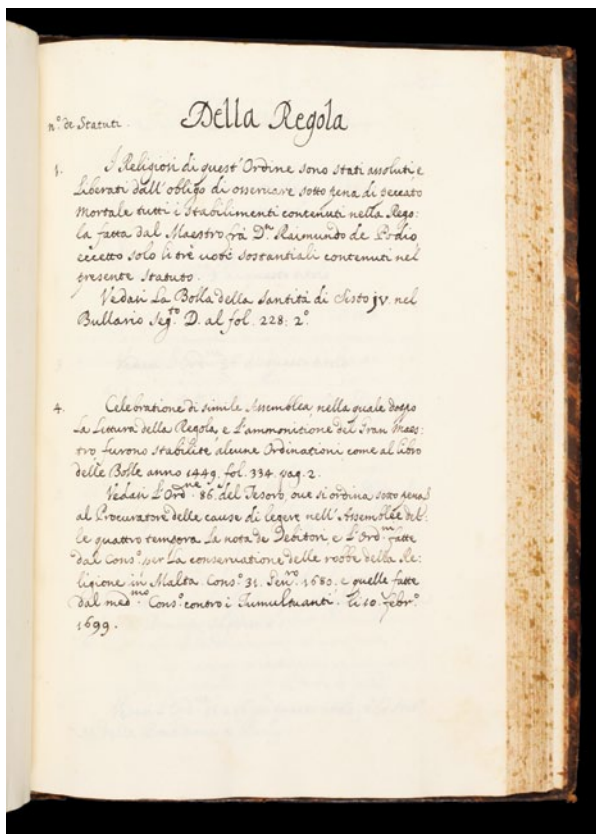 n.º de Statuti. Della Regola
1. I Religiosi di quest' Ordine sono stati assoluti e
Liberati dall' obligo di osseruare sotto pena di peccato
mortale tutti i stabilimenti contenuti nella Rego:
la fatta dal Maestro frà D.n Raimundo de Podio
eccetto solo li trè uoti sostantiali contenuti nel
presente Statuto.
Vedasi La Bolla della Santità di Sisto jv. nel
Bullario Seg.to D. al fol. 228: 2.º
4. Celebratione di simile Assemblea nella quale doppo
La Lettura della Regola, e L'ammonitione del Gran Maes:
tro furono stabilite alcune Ordinationi come al libro
delle Bolle anno 1449. fol. 334. pag. 2.
Vedasi L'Ord.ne 86. del Tesoro, oue si ordina sotto pena
al Procuratore delle cause di legere nell' Assemblèe del:
le quattro tempora La nota de Debitori e L'Ord.ni fatte
dal Cons.º per La conseruatione delle robbe della Re:
ligione in Malta. Cons.º 31. Gen.ro 1680. e quelle fatte
dal med.mo Cons.º contro i Tumultuanti. li 10. febr.º
1699.